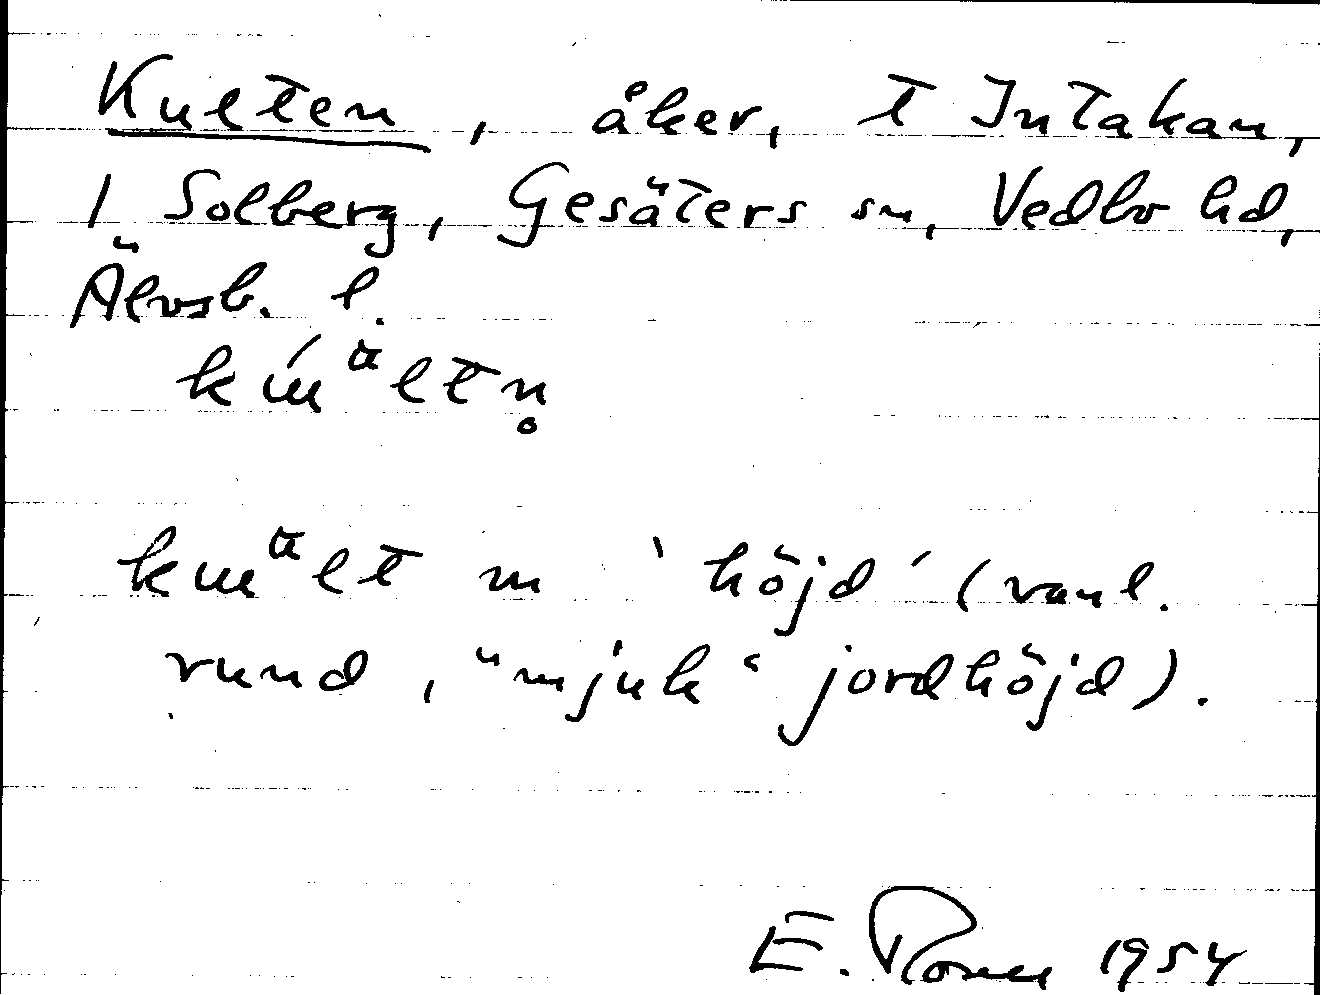 Kulten, åker, t Intakan,
1 Solberg, Gesäters sn, Vedbo hd,
Älvsb. l.
kult m 'höjd' (vanl.
rund, "mjuk" jordhöjd).
E. 1954